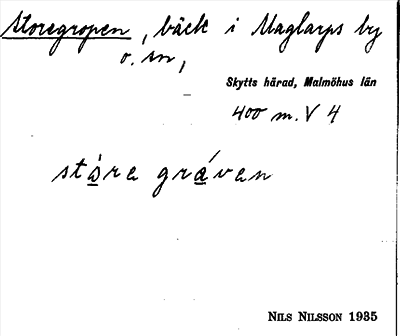 Storegropen, bäck i Maglarps by
o. sn,
Skytts härad, Malmöhus län
400 m. V 4
ståre gráven
Nils Nilsson 1935